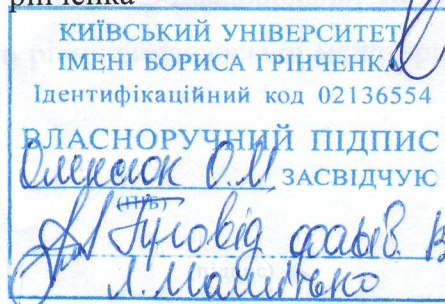 рінченка
КИЇВСЬКИЙ УНІВЕРСИТЕТ
ІМЕНІ БОРИСА ГРІНЧЕНКА
Ідентифікаційний код 02136554
ВЛАСНОРУЧНИЙ ПІДПИС
Олексюк О.М. ЗАСВІДЧУЮ
(ПІБ)
фахів.